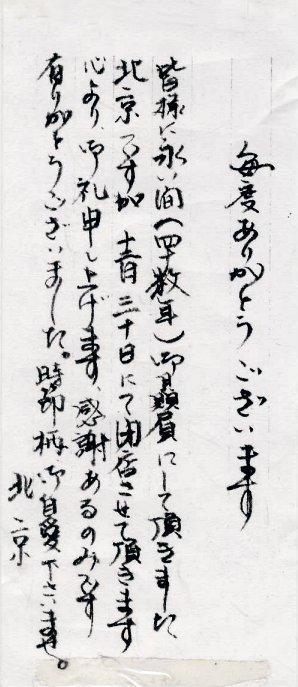 毎度ありがとうございます
皆様に永い間（四十数年）御贔屓にして頂きました
北京ですが 十一月三十日にて閉店させて頂きます
心より、御礼申し上げます、感謝あるのみです
有りがとうございました。時節柄御自愛下さいませ。
北京